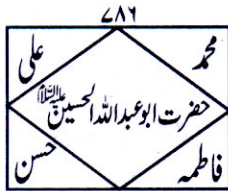 ٧٨٦
محمد علی
حضرت ابو عبداللہ الحسین علیہ السلام
فاطمہ حسن